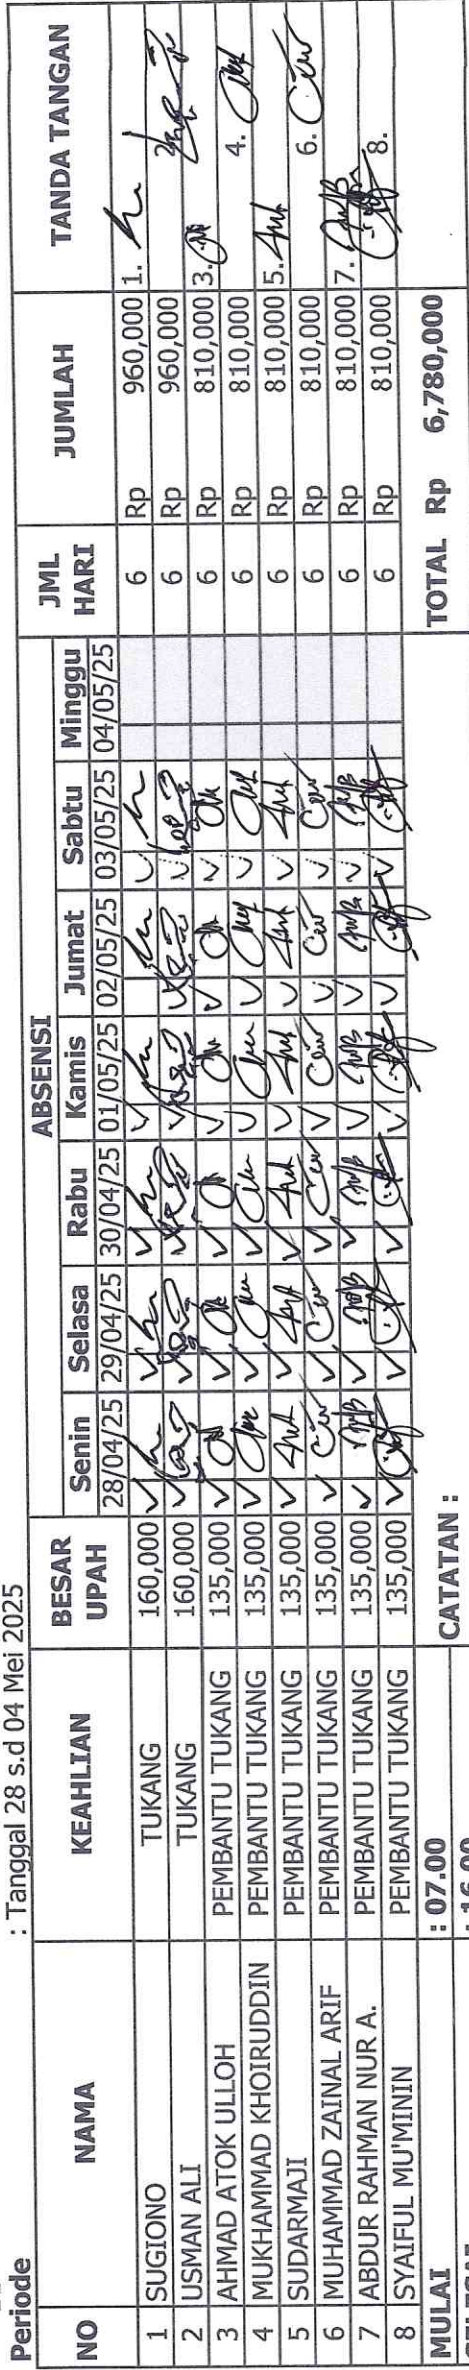 Periode : Tanggal 28 s.d 04 Mei 2025
NO NAMA KEAHLIAN BESAR UPAH ABSENSI JML HARI JUMLAH TANDA TANGAN
Senin Selasa Rabu Kamis Jumat Sabtu Minggu
28/04/25 29/04/25 30/04/25 01/05/25 02/05/25 03/05/25 04/05/25
1 SUGIONO TUKANG 160,000 6 Rp 960,000 1.
2 USMAN ALI TUKANG 160,000 6 Rp 960,000 2.
3 AHMAD ATOK ULLOH PEMBANTU TUKANG 135,000 6 Rp 810,000 3.
4 MUKHAMMAD KHOIRUDDIN PEMBANTU TUKANG 135,000 6 Rp 810,000 4.
5 SUDARMAJI PEMBANTU TUKANG 135,000 6 Rp 810,000 5.
6 MUHAMMAD ZAINAL ARIF PEMBANTU TUKANG 135,000 6 Rp 810,000 6.
7 ABDUR RAHMAN NUR A. PEMBANTU TUKANG 135,000 6 Rp 810,000 7.
8 SYAIFUL MU'MININ PEMBANTU TUKANG 135,000 6 Rp 810,000 8.
MULAI : 07.00 CATATAN : TOTAL Rp 6,780,000
SELESAI : 16.00